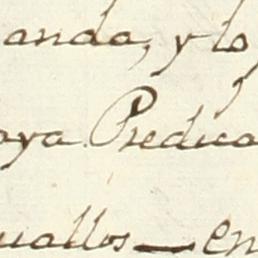 anda, y lo
oya Predica
uallos - en